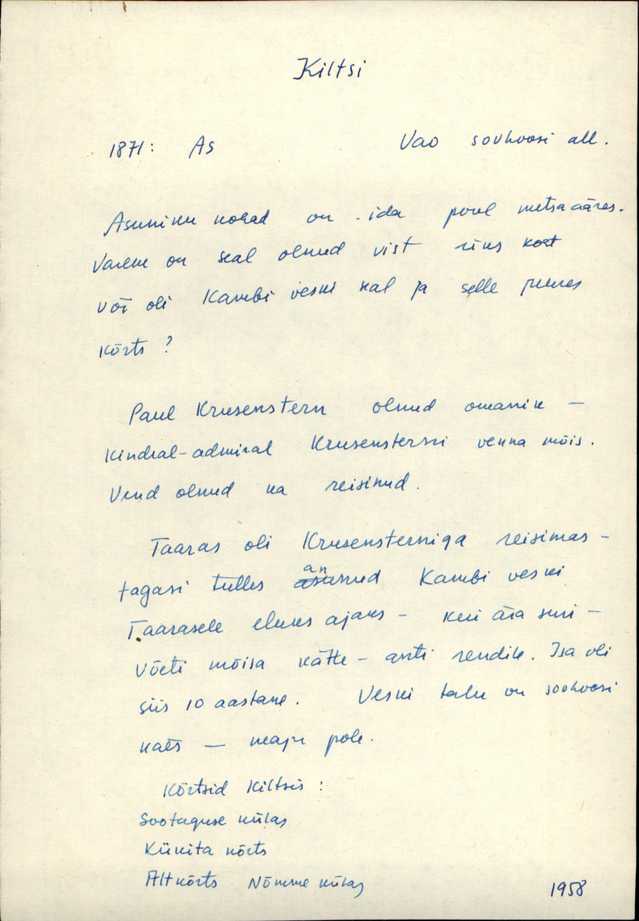 Kiltsi
1871: As Vao sovhoosi all.
Asuniku kohad on ida pool metsaääres.
Varem on seal olnud vist üks kost
või oli Kambi veski seal ja selle juures
kõrts?
Paul Krusenstern olnud omanik –
kindral-admiral Krusensterni venna mõis.
Vend olnud ka reisinud.
Taaras oli Krusensterniga reisimas –
tagasi tulles annud Kambi veski
Taarasele eluks ajaks – kui ära suri –
võeti mõisa kätte – anti rendile. Isa oli
siis 10 aastane. Veski talu on sovhoosi
käes – maju pole.
Kõrtsid Kiltsis:
Sootaguse külas
Künita kõrts
Altkõrts Nõmme külas
1958